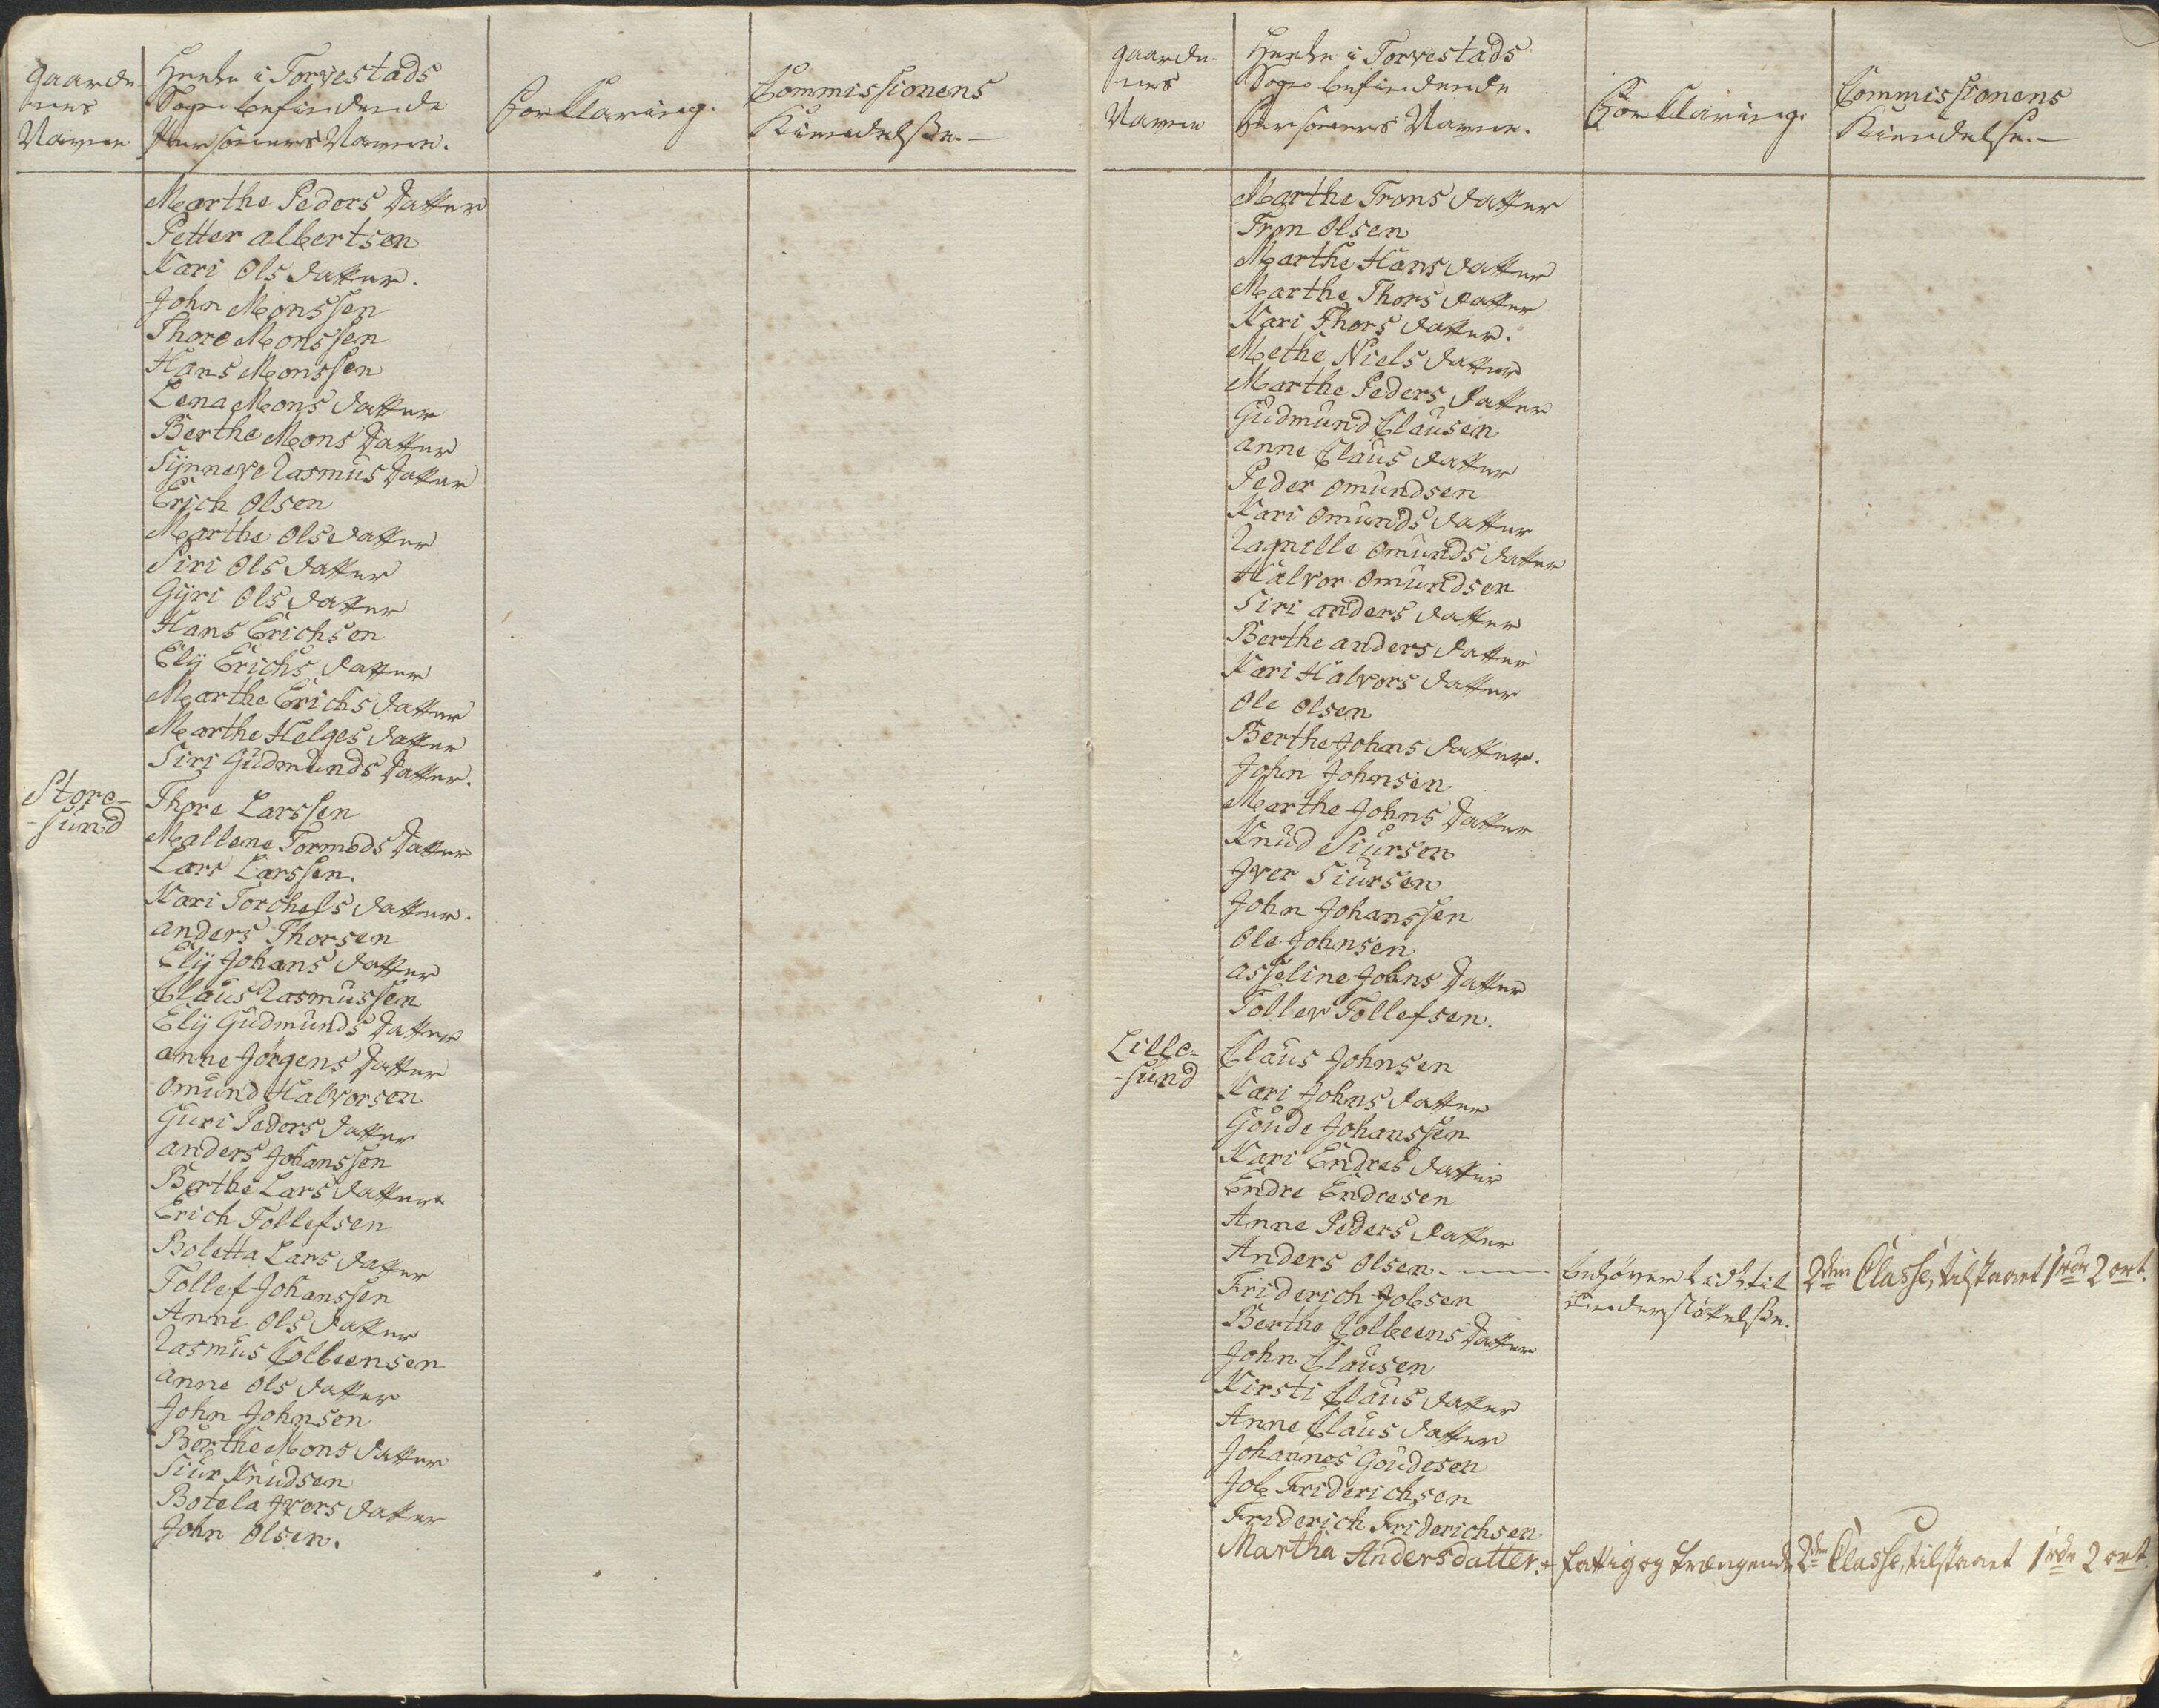 Gaarde
nes
Navne
Heele i Torvestads
Sogn befindende
Personers Navne.
Forklaring.
Commissionens
Kiendelsse.-
Marthe Peders Datter
Petter Albertsen
Kari Ols datter.
John Monssen
Thore Monssen
Hans Monssen
Lena Mons datter
Berthe Mons Datter
Synneve Rasmus Datter
Erich Olsen
Marthe Olsdatter
Siri Ols datter
Gyri Ols datter
Hans Erichsen
Ely Erichs datter
Marthe Erichs datter
Marthe Helges datter
Siri Gudmunds Datter.
Store-
-sund
Thore Larssen
Mallene Tormods Datter
Lars Larssen.
Kari Torchels datter.
anders Thorsen
Ely Johans datter
Claus Rasmussen
Ely Gudmunds Datter
anne Jørgens Datter
Omund Halvorsen
Guri Peders datter
anders Johanssen
Berthe Lars datter
Erich Tollefsen
Boletta Lars datter
Tollef Johanssen
Anne Ols datter
Rasmus Colbeensen
anne Ols datter
John Johnsen
Berthe Mons datter
Siur Knudsen
Botela Jvers datter
John Olsen.
Gaarde-
nes
Navne
Heele i Torvestads
Sogn befindende
Personers Navne.
Forklaring.
Commissionens
Kiendelse.-
Marthe Trons datter
Tron Olsen
Marthe Hans datter
Marthe Thors datter
Kari Thors datter.
Methe Niels datter
Marthe Peders datter
Gudmund Clausen
anne Claus datter
Peder Omundsen
Kari Omunds datter
Ragnille Omunds datter
Halvor Omundsen
Siri anders datter
Berthe anders datter
Kari Halvors datter
Ole Olsen
Berthe Johns datter.
John Johnsen
Marthe Johns Datter
Knud Siursen
Jver Siursen
John Johanssen
Ole Johnsen
asseline Johns Datter
Tollev Tollefsen.
Lille-
-sund
Claus Johnsen
Kari Johns datter
Goude Johanssen
Kari Endres datter
Endre Endresen
Anne Peders datter
Anders Olsen - behøver lidt til 2den Classe, tilstaaet 1 rdr 2 ort.
Friderich Jobsen understøttelsse.
Berthe Colbeens Datter
John Clausen
Kirsti Claus datter
Anne Claus datter
Johannes Goudesen
Job Friderichsen
Friderich Friderichsen
Martha Andersdatter.+ fattig og trængende 2den Classe, tilstaaet 1 rdr 2 ort.